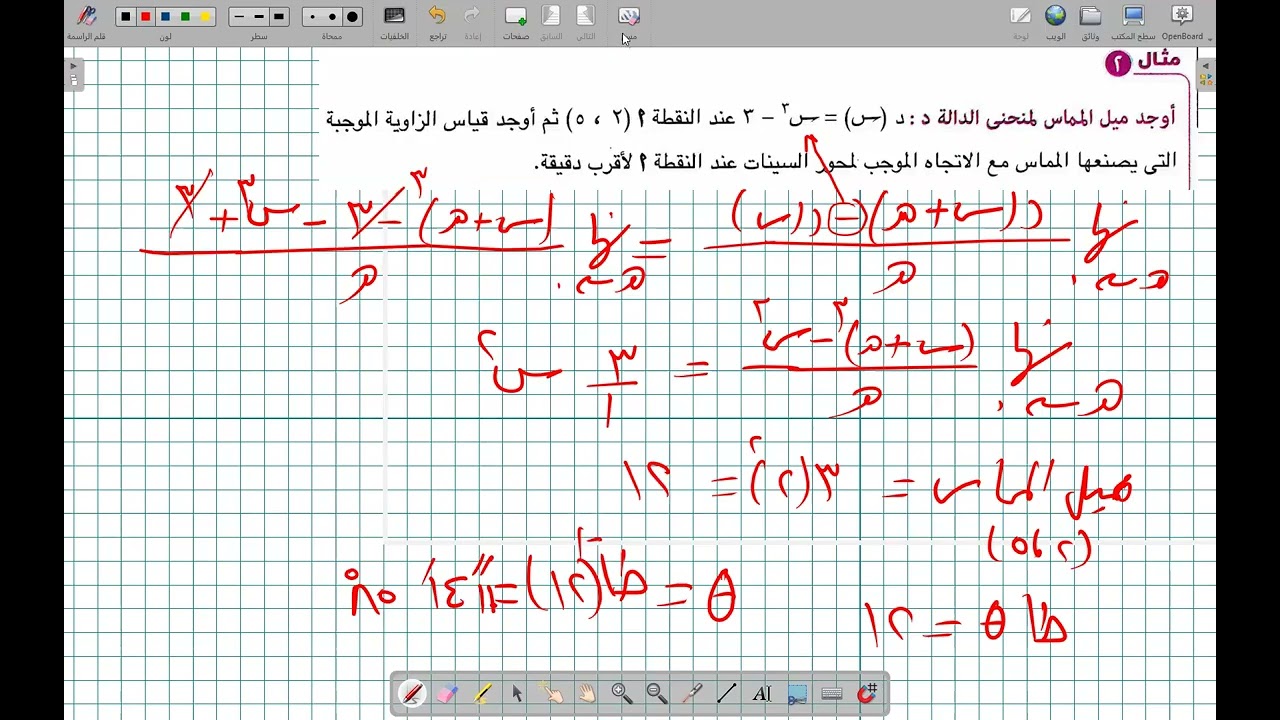 قلم الراسمة
لون
سطر
ممحاة
الخلفيات
تراجع
إعادة
صفحات
السابق
التالي
لوحة
الويب
وثائق
سطح المكتب
OpenBoard
مثال ٢
أوجد ميل المماس لمنحنى الدالة د : د (س) = س٣ – ٣ عند النقطة ٩ (٢ ، ٥) ثم أوجد قياس الزاوية الموجبة
التى يصنعها المماس مع الاتجاه الموجب لمحور السينات عند النقطة ٩ لأقرب دقيقة.
نها هـ→٠ (د(س+هـ) – د(س)) / هـ = نها هـ→٠ ((س+هـ)٣ – ٣ – س٣ + ٣) / هـ
نها هـ→٠ ((س+هـ)٣ – س٣) / هـ = ٣/١ س٢
ميل المماس = ٣(٢)٢ = ١٢
(٢، ٥)
ظا θ = ١٢
θ = ظا-١(١٢) = ١١″ ١٤′ ٨٥°